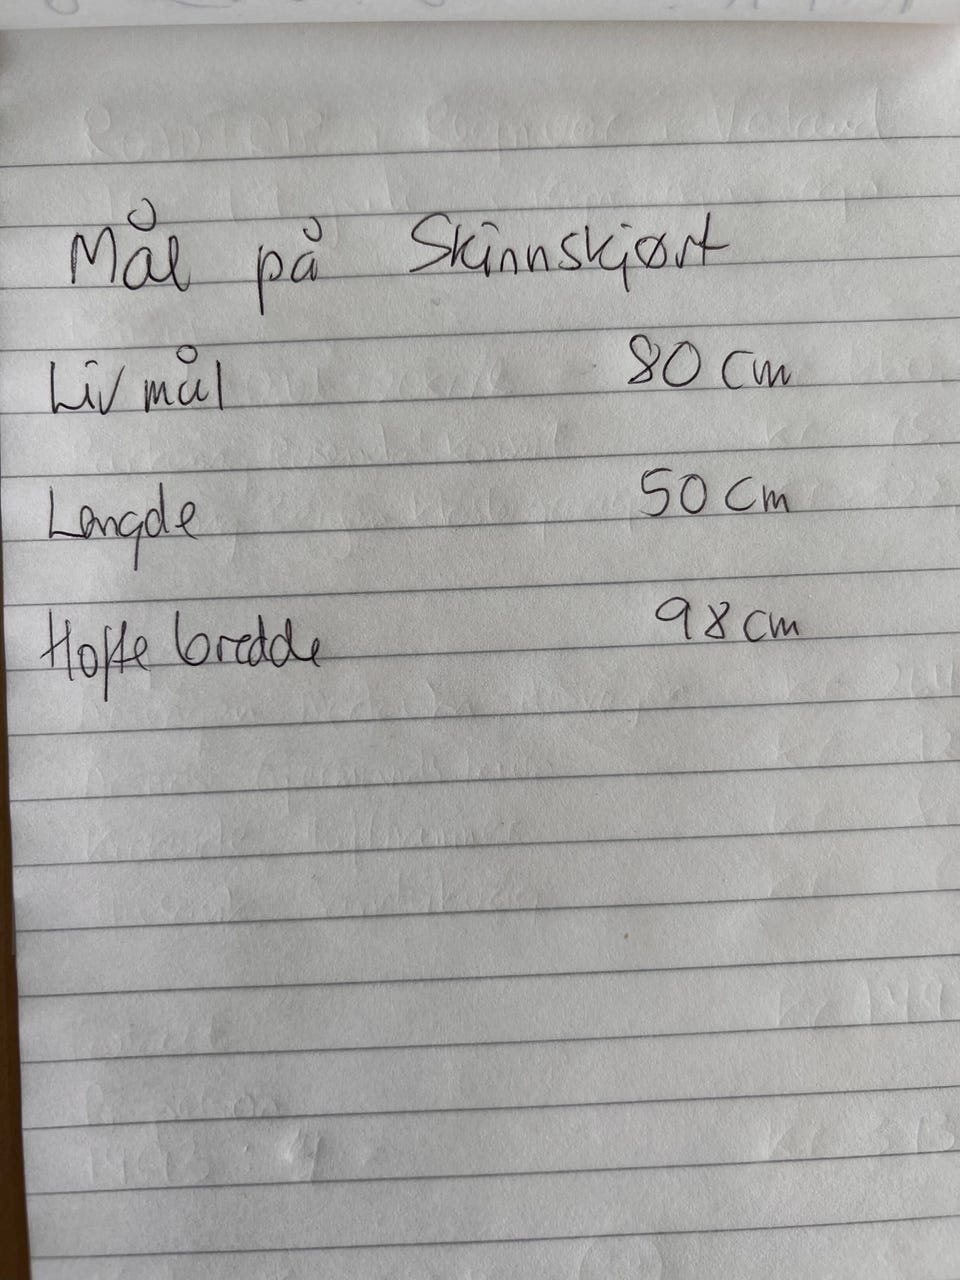 Mål på Skinnskjørt
Liv mål 80 cm
Lengde 50 cm
Hofte bredde 98 cm